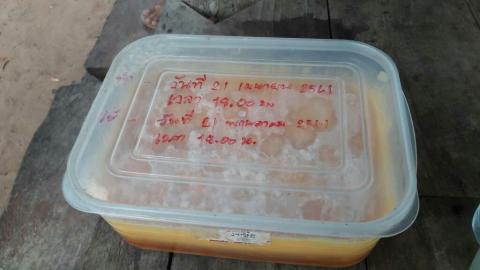 วันที่ 21 เมษายน 2563
เวลา 19.00 น
วันที่ 21 พฤษภาคม 2563
เวลา 19.00 น.